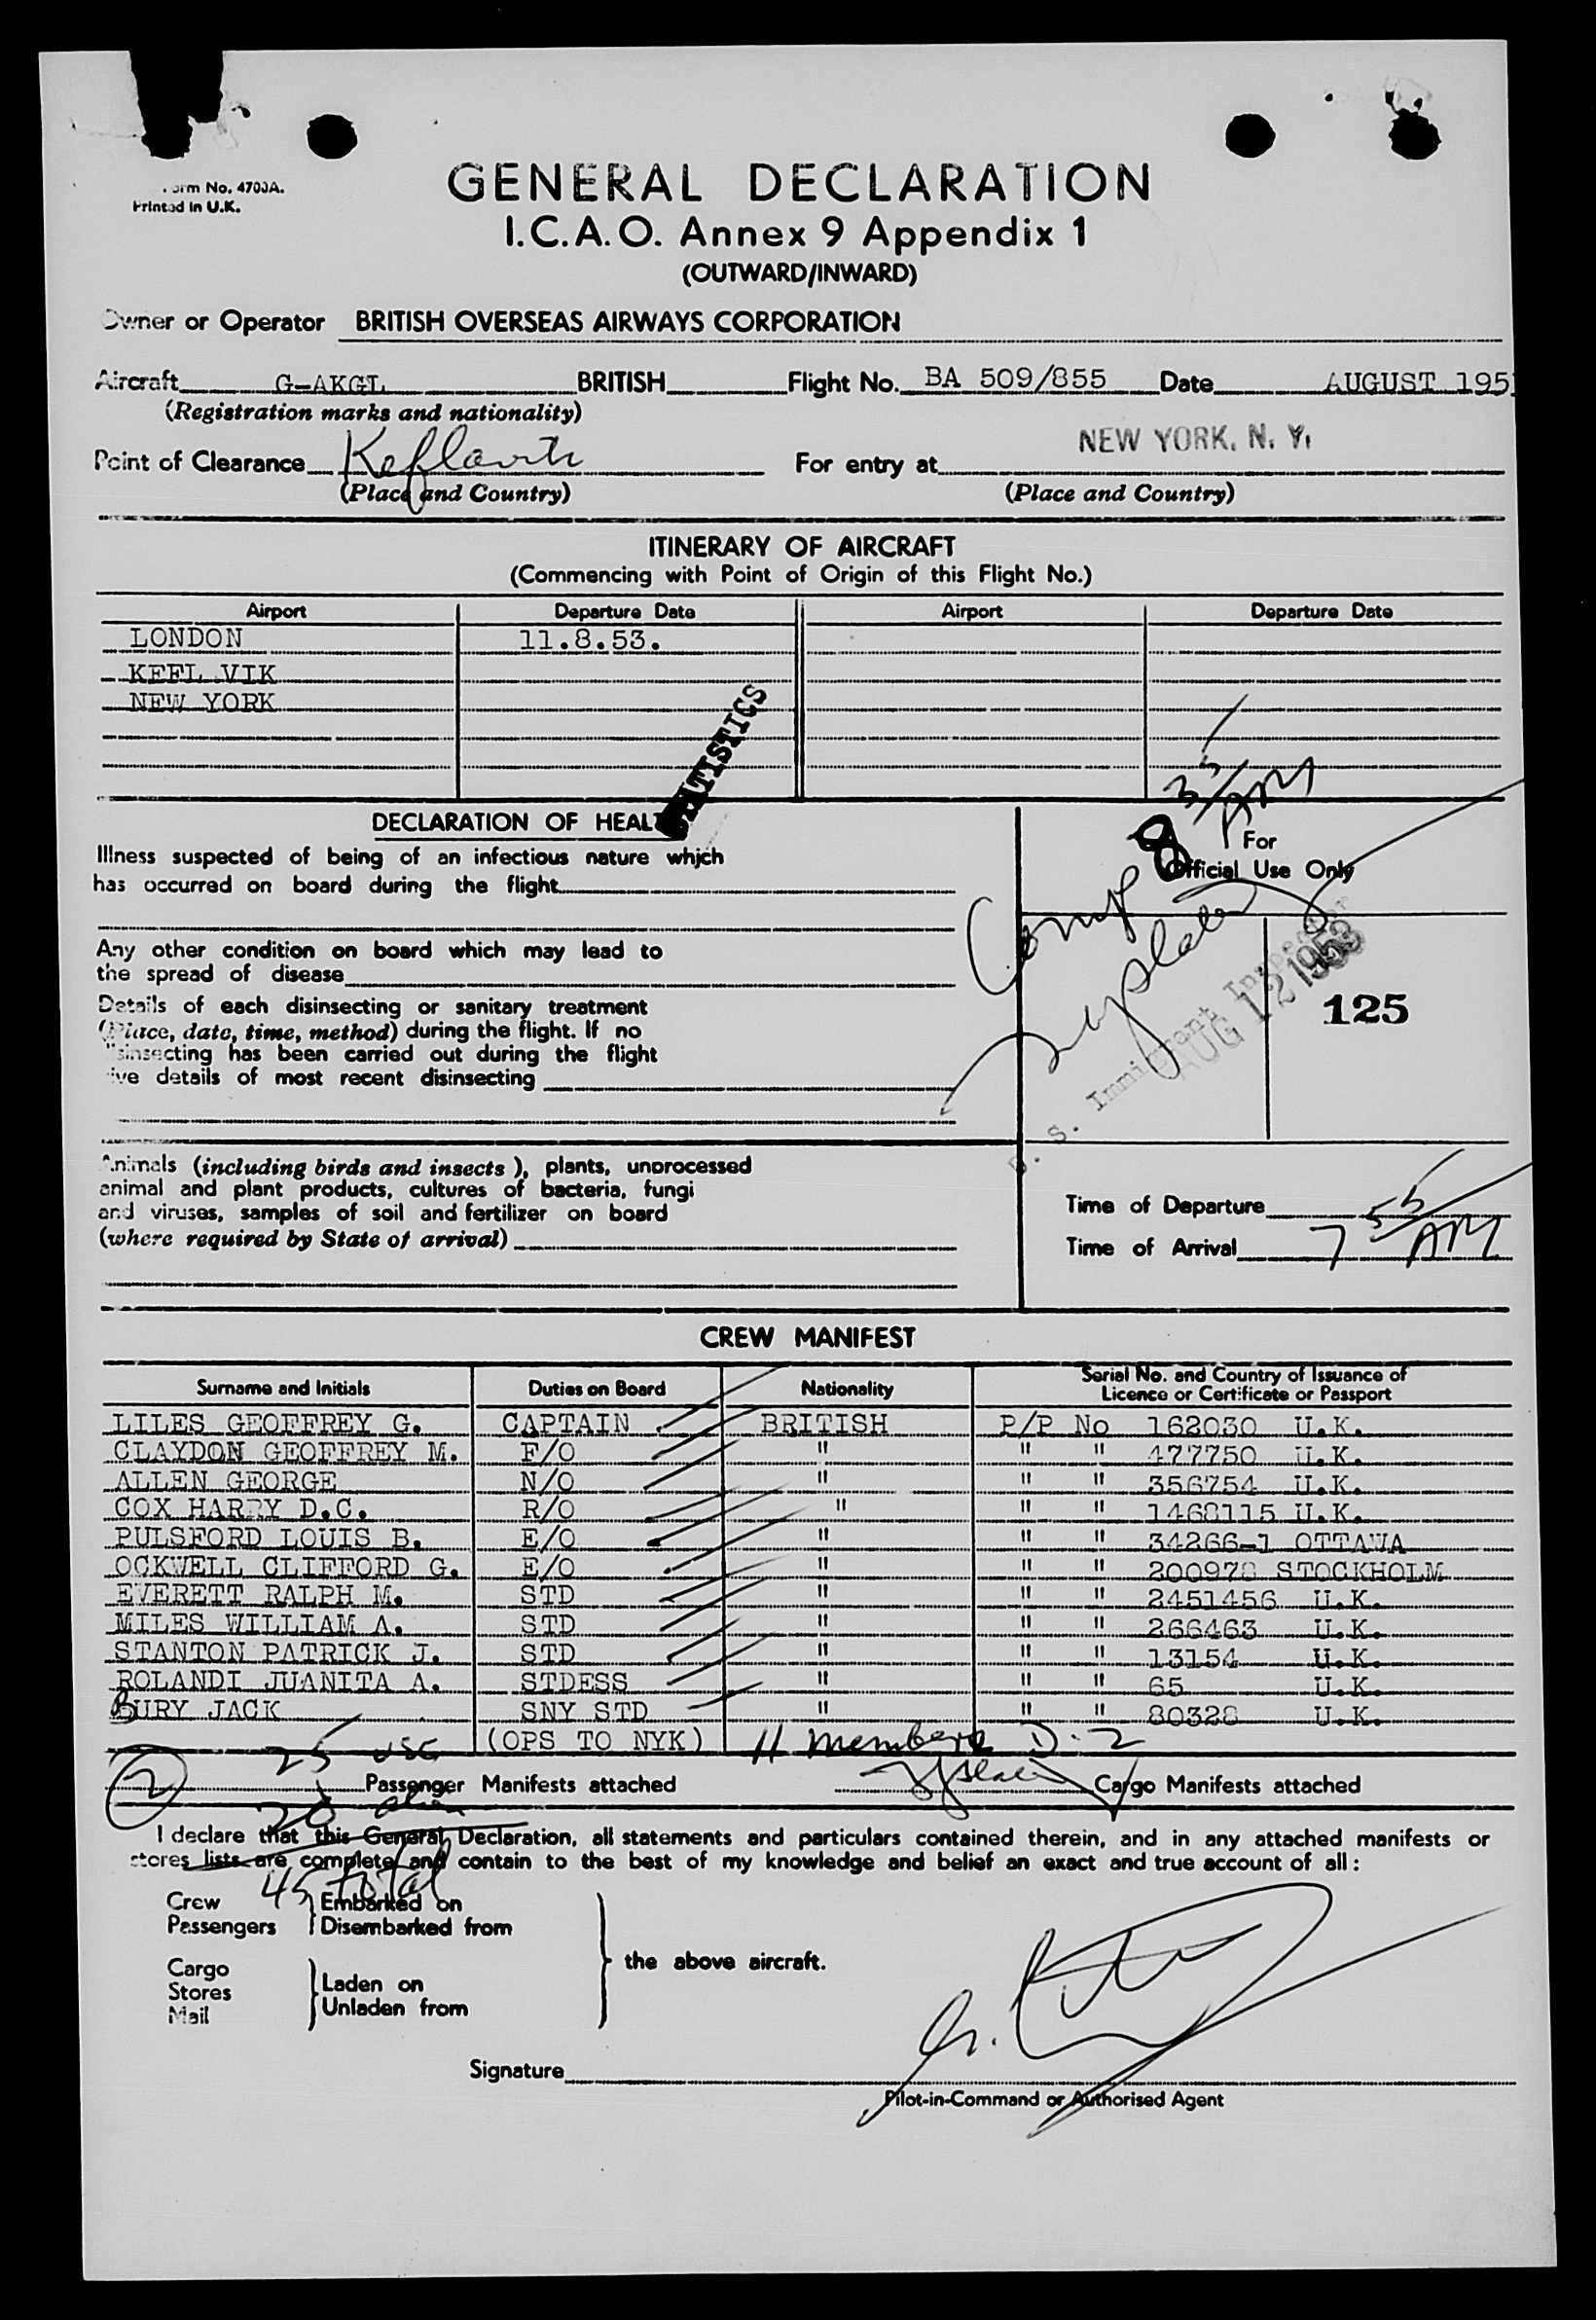 Form No. 4700A.
Printed in U.K.
GENERAL DECLARATION
I.C.A.O. Annex 9 Appendix 1
(OUTWARD/INWARD)
Owner or Operator BRITISH OVERSEAS AIRWAYS CORPORATION
Aircraft G-AKGL BRITISH Flight No. BA 509/855 Date AUGUST 195
(Registration marks and nationality)
NEW YORK, N. Y.
Point of Clearance Keflavik For entry at
(Place and Country) (Place and Country)
ITINERARY OF AIRCRAFT
(Commencing with Point of Origin of this Flight No.)
Airport Departure Date Airport Departure Date
LONDON 11.8.53.
KEFL VIK
NEW YORK
STATISTICS
8 35 AM
DECLARATION OF HEALT
For
Official Use Only
Illness suspected of being of an infectious nature which
has occurred on board during the flight
Comp
Any other condition on board which may lead to
the spread of disease
U.S. Immigrant Inspector
AUG 12 1953
125
Details of each disinsecting or sanitary treatment
(Place, date, time, method) during the flight. If no
disinsecting has been carried out during the flight
give details of most recent disinsecting
Animals (including birds and insects), plants, unprocessed
animal and plant products, cultures of bacteria, fungi
and viruses, samples of soil and fertilizer on board
(where required by State of arrival)
Time of Departure
Time of Arrival 7 55 AM
CREW MANIFEST
Surname and Initials Duties on Board Nationality Serial No. and Country of Issuance of
Licence or Certificate or Passport
LILES GEOFFREY G. CAPTAIN BRITISH P/P No 162030 U.K.
CLAYDON GEOFFREY M. F/O " " " 477750 U.K.
ALLEN GEORGE N/O " " " 356754 U.K.
COX HARRY D.C. R/O " " " 1468115 U.K.
PULSFORD LOUIS B. E/O " " " 34266-1 OTTAWA
OCKWELL CLIFFORD G. E/O " " " 200978 STOCKHOLM
EVERETT RALPH M. STD " " " 2451456 U.K.
MILES WILLIAM A. STD " " " 266463 U.K.
STANTON PATRICK J. STD " " " 13154 U.K.
ROLANDI JUANITA A. STDESS " " " 65 U.K.
BURY JACK SNY STD " " " 80328 U.K.
(OPS TO NYK) 11 members D-2
25 USC
2 Passenger Manifests attached Cargo Manifests attached
20 alien
I declare that this General Declaration, all statements and particulars contained therein, and in any attached manifests or
stores lists are complete and contain to the best of my knowledge and belief an exact and true account of all :
45 total
Crew Embarked on
Passengers Disembarked from
the above aircraft.
Cargo
Stores Laden on
Mail Unladen from
Signature
Pilot-in-Command or Authorised Agent